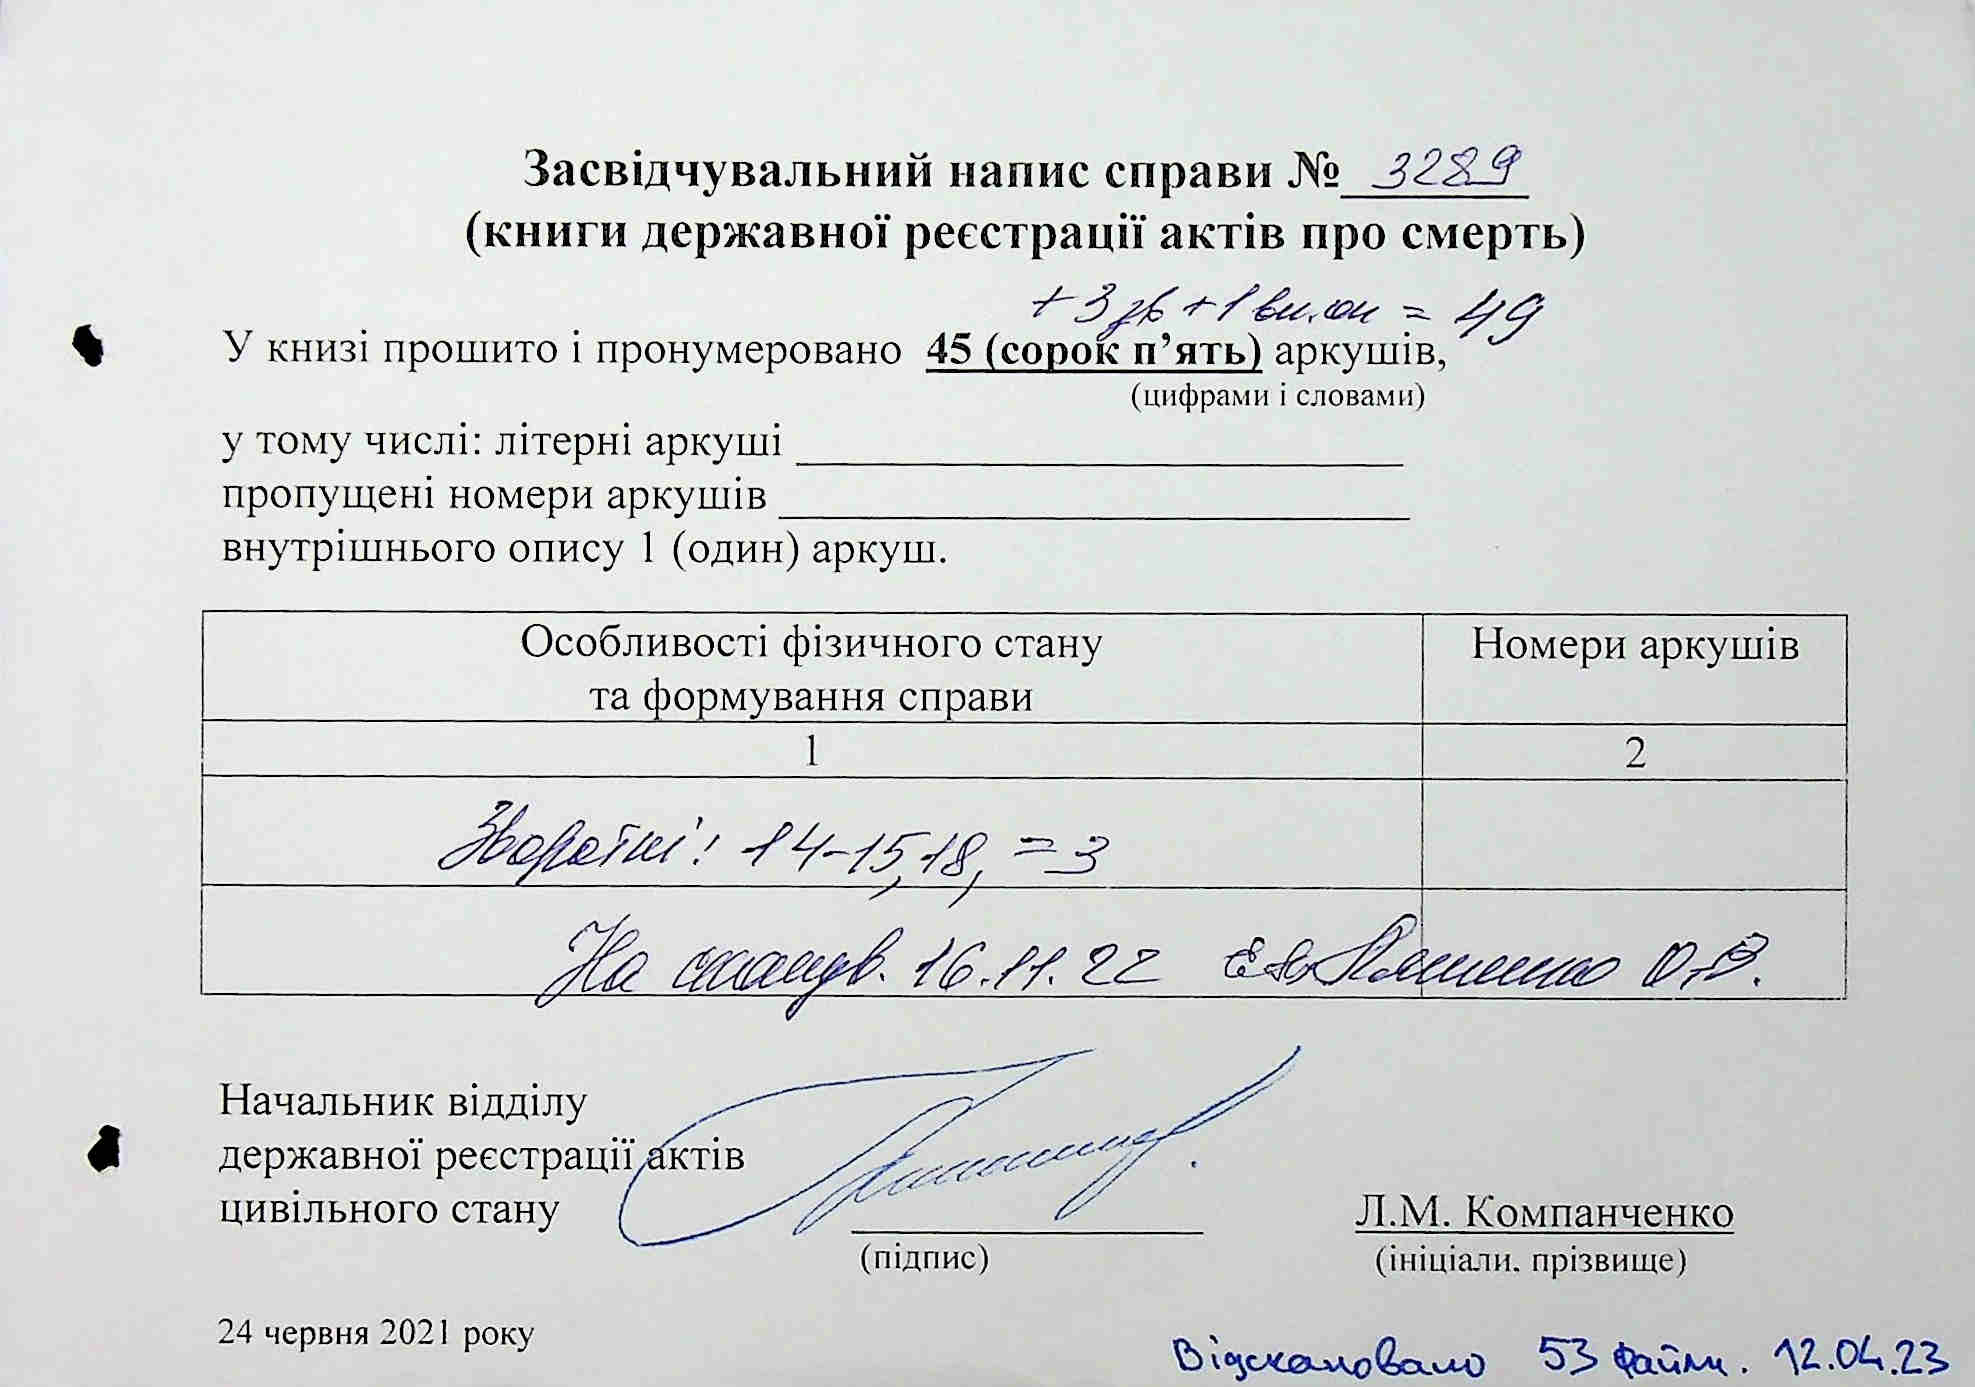 Засвідчувальний напис справи № 3289
(книги державної реєстрації актів про смерть)
+ 3 зв + 1 вн.оп = 49
У книзі прошито і пронумеровано 45 (сорок п’ять) аркушів,
(цифрами і словами)
у тому числі: літерні аркуші
пропущені номери аркушів
внутрішнього опису 1 (один) аркуш.
Особливості фізичного стану та формування справи
Номери аркушів
1 2
Зворотні: 14-15, 18, = 3
На 16.11.22 О.В.
Начальник відділу
державної реєстрації актів
цивільного стану
Л.М. Компанченко
(підпис) (ініціали, прізвище)
24 червня 2021 року
Відскановано 53 файли. 12.04.23